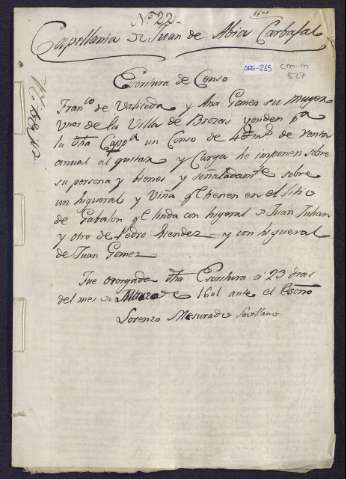 Nº 22.
Capellania de Juan de Abia Carbajal
Escritura de Censo
Franco de Valverde y Ana Gomez su muger
Vnos de la Villa de Brozas venden pa
la dha Cappna un Censo de renta
annual al quitar y Carga he imponen sobre
su persona y bienes y señaladamte sobre
un higueral y Viña qe tienen en el sitio
de qe linda con higueral de Juan
y otro de Pedro Mendez y con higueral
de Juan Gomez
Fue otorgada dha Escritura a 23 dias
del mes de Marzo de 1601 ante el Escno
Lorenzo